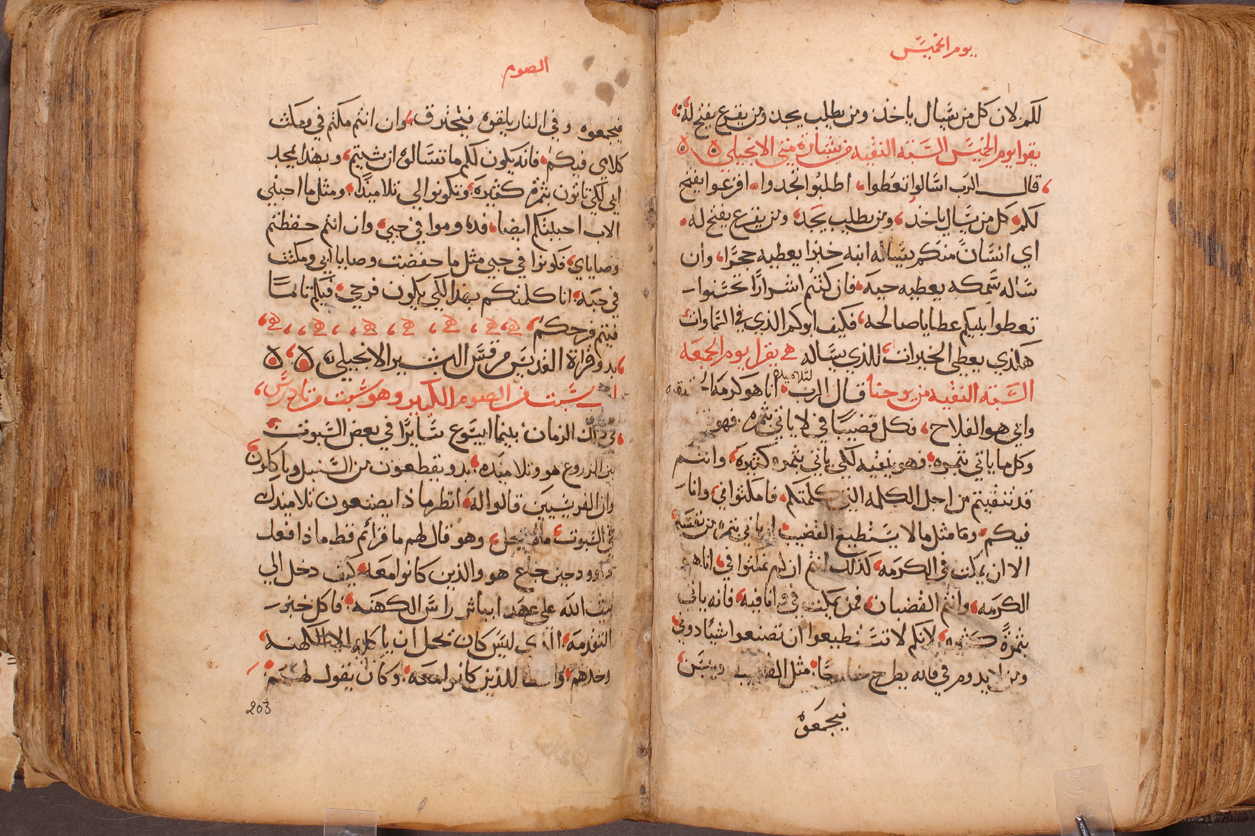 يوم الخميس
لكم لان كل من يسال ياخذ ومن يطلب يجد ومن يقرع يفتح له
يقرا يوم الخميس السنه النقيه من بشارة متى الانجيلي
قال الرب اسالوا تعطوا اطلبوا تجدوا اقرعوا يفتح
لكم كل من يسال ياخذ ومن يطلب يجد ومن يقرع يفتح له
اي انسان منكم يساله ابنه خبزا يعطيه حجرا وان
ساله سمكه يعطيه حيه فان كنتم اشرارا تحسنوا
تعطوا بنيكم عطايا صالحه فكيف ابوكم الذي في السماوات
هكدي يعطي الخيرات للذي يساله يقرا يوم الجمعه
السته النقيه من يوحنا قال الرب لتلاميذه انا هو كرمة الحقيقه
وابي هو الفلاح وكل قضيبا في لا ياتي بثمره فهو
وكل ما ياتي بثمره فهو ينقيه لكي ياتي بثمره كثيره وانتم
قد تنقيتم من اجل الكلمه التي كلمتكم فامكثوا في وانا
فيكم وكما مثل ما لا يستطيع القضيب ان ياتي بثمره من نفسه
الا ان يكث في الكرمه كذلك انتم ان لم تمكثوا في انا هو
الكرمه وانتم القضبان فمن يمكث في وانا فيه فانه ياتي
بثمرة كثيره لانكم لا تستطيعوا ان تصنعوا شيا دوني
ومن لا يدوم في فانه يطرح خارجا مثل القضيب وييبس
فيجمعوه
الصوم
فيجمعوه وفي النار يلقوه فيحترق وان انتم مكثتم في ومكث
كلامي فيكم فانه يكون لكم ما تسالوه ان شيتم وبهدا يمجد
ابي لكي تاتون بثمره كثيره وتكونوا لي تلاميذا ومثل ما احبني
الاب احببتكم ايضا فدوموا في حبي وان انتم حفظتم
وصاياي فدوموا في حبي مثل ما حفضت وصايا ابي ومكثت
في حبه انا كلمتكم بهدا لكي يكون فرحي فيكم تاما
فيتم فرحكم
بدو قراة القديس مرقس البشير الانجيلي
سبت من الصوم الكبير وهو سبت مرتادرس
في ذلك الزمان بينما ايسوع سايرا في بعض السبوت
بين الزروع هو وتلاميذه بدو يقطعون من السنبل وياكلون
وان الفريسيين قالوا له انظر ما ذا يصنعون تلاميدك
في السبوت ما لا يحل وهو قال لهم ما قراتم قط ما ذا فعل
داوود حين جاع هو والذين كانوا معه كيف دخل الي
بيت الله على عهد ابياثر راس الكهنه فاكل خبز
التقدمه الذي ليس كان يحل ان ياكله الا الكهنه
وحدهم واعطا للذين كانوا معه وكان يقول لهم
203